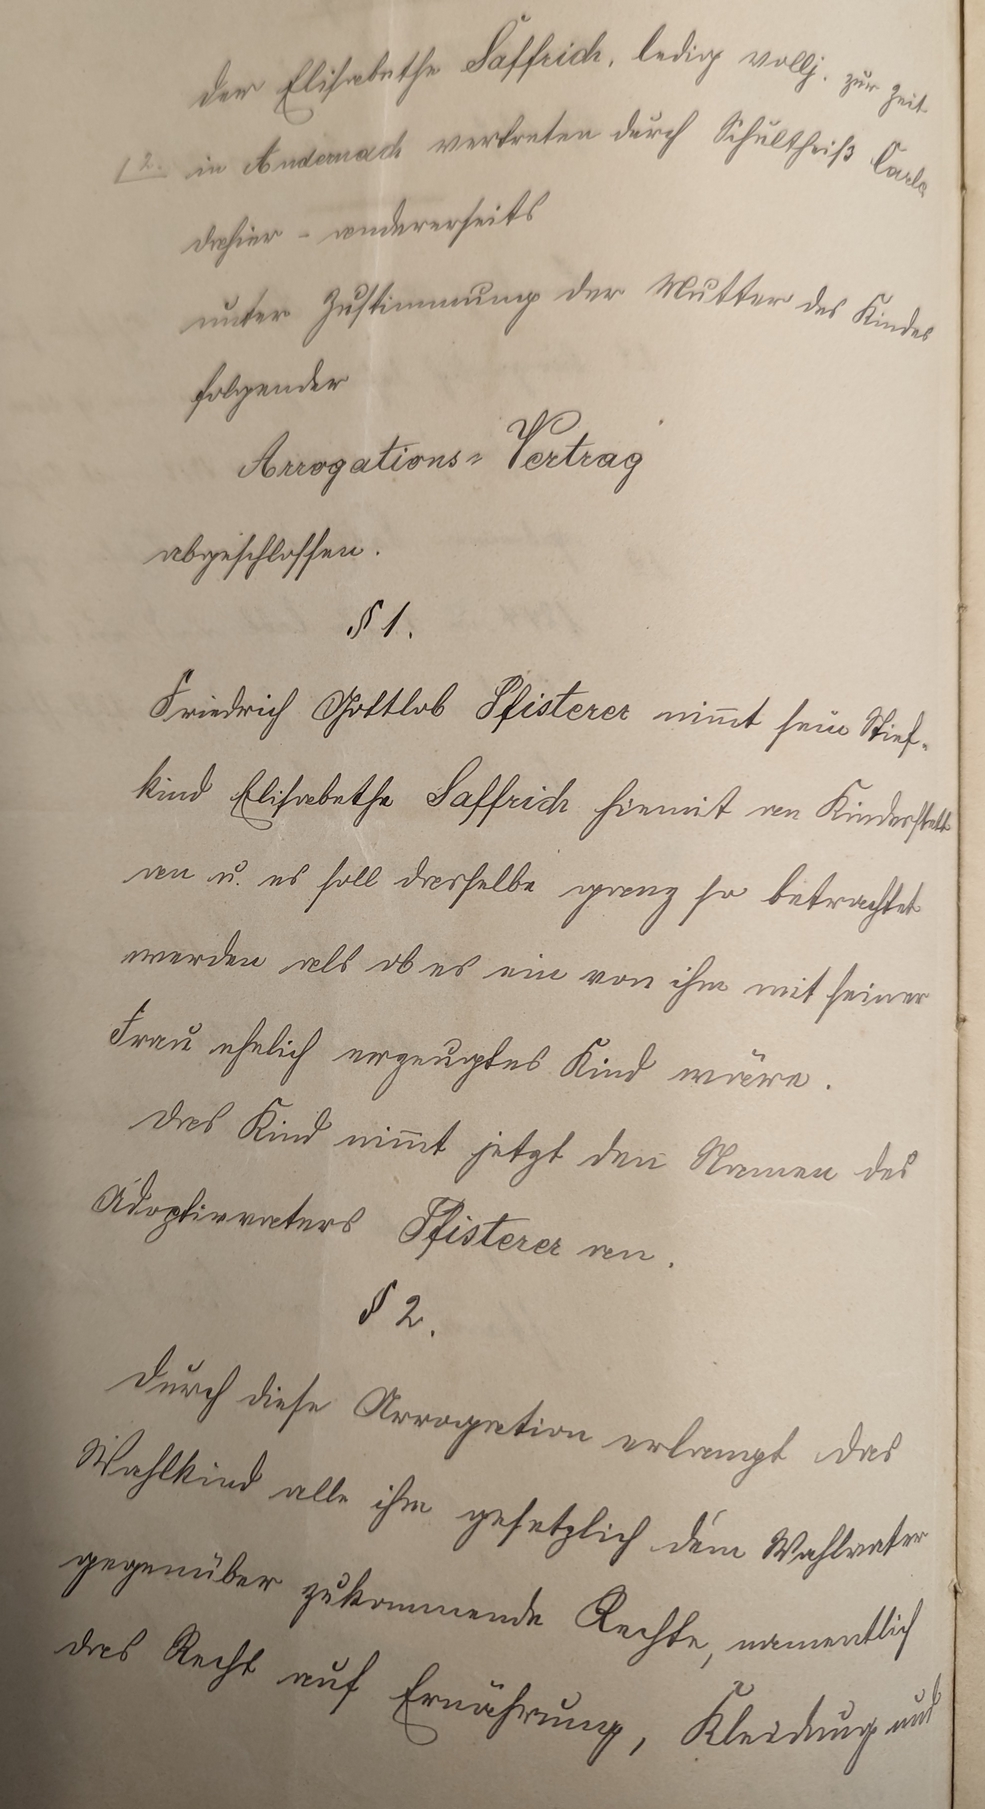 der Elisabethe Saffrich, ledig vollj. zur Zeit
[2. in Andernach vertreten durch Schultheiß Carle
dahier - andererseits
unter Zustimmung der Mutter des Kindes
folgender
Arrogations= Vertrag
abgeschlossen.
§ 1.
Friedrich Gottlob Pfisterer nim̄t sein Stief-
kind Elisabethe Saffrich hiemit an Kindesstatt
an u. es soll dasselbe ganz so betrachtet
werden als ob es ein von ihm mit seiner
Frau ehelich erzeugtes Kind wäre.
Das Kind nim̄t jetzt den Namen des
Adoptivvaters Pfisterer an.
§ 2.
Durch diese Arrogation erlangt das
Wahlkind alle ihm gesetzlich dem Wahlvater
gegenüber zukommende Rechte, namentlich
das Recht auf Ernährung, Kleidung und